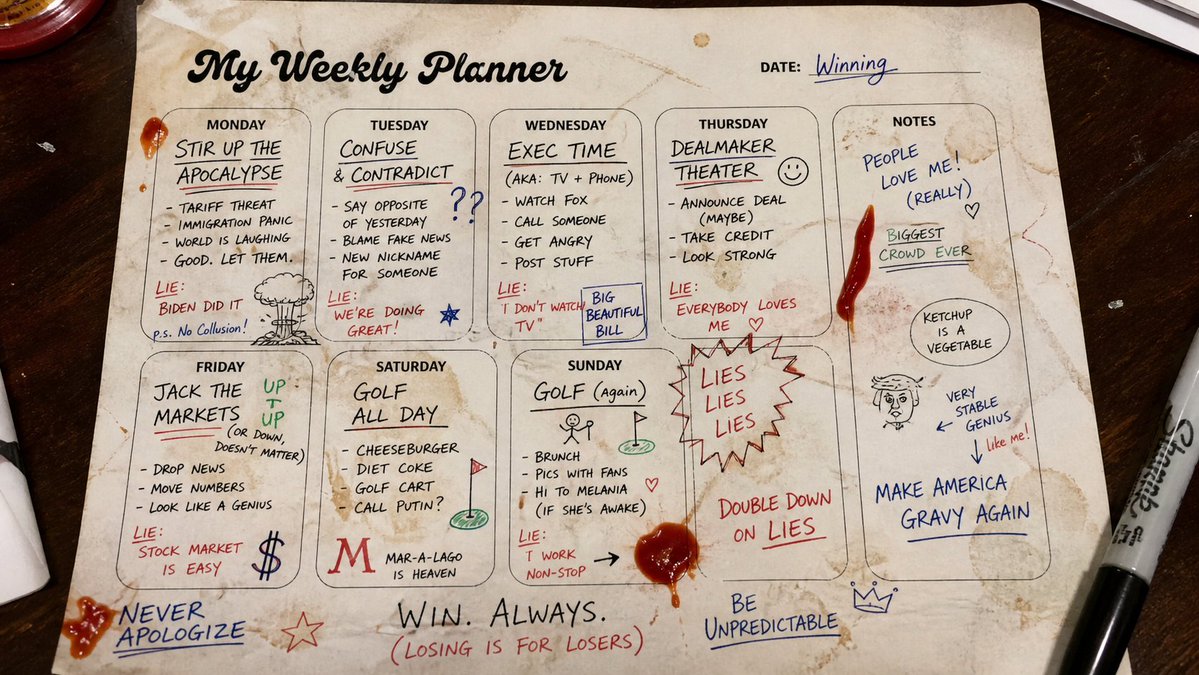 My Weekly Planner
DATE: Winning
MONDAY
STIR UP THE
APOCALYPSE
- TARIFF THREAT
- IMMIGRATION PANIC
- WORLD IS LAUGHING
- GOOD. LET THEM.
LIE:
BIDEN DID IT
P.S. No Collusion!
TUESDAY
CONFUSE
& CONTRADICT
??
- SAY OPPOSITE
OF YESTERDAY
- BLAME FAKE NEWS
- NEW NICKNAME
FOR SOMEONE
LIE:
WE'RE DOING
GREAT!
WEDNESDAY
EXEC TIME
(AKA: TV + PHONE)
- WATCH FOX
- CALL SOMEONE
- GET ANGRY
- POST STUFF
LIE:
"I DON'T WATCH
TV"
BIG
BEAUTIFUL
BILL
THURSDAY
DEALMAKER
THEATER
- ANNOUNCE DEAL
(MAYBE)
- TAKE CREDIT
- LOOK STRONG
LIE:
EVERYBODY LOVES
ME
NOTES
PEOPLE
LOVE ME!
(REALLY)
BIGGEST
CROWD EVER
KETCHUP
IS A
VEGETABLE
VERY
STABLE
GENIUS
like me!
MAKE AMERICA
GRAVY AGAIN
FRIDAY
JACK THE
MARKETS
UP
T
UP
(OR DOWN,
DOESN'T MATTER)
- DROP NEWS
- MOVE NUMBERS
- LOOK LIKE A GENIUS
LIE:
STOCK MARKET
IS EASY
$
SATURDAY
GOLF
ALL DAY
- CHEESEBURGER
- DIET COKE
- GOLF CART
- CALL PUTIN?
M
MAR-A-LAGO
IS HEAVEN
SUNDAY
GOLF (Again)
- BRUNCH
- PICS WITH FANS
- HI TO MELANIA
(IF SHE'S AWAKE)
LIE:
"I WORK
NON-STOP
LIES
LIES
LIES
DOUBLE DOWN
ON LIES
NEVER
APOLOGIZE
WIN. ALWAYS.
(LOSING IS FOR LOSERS)
BE
UNPREDICTABLE
Sharpie